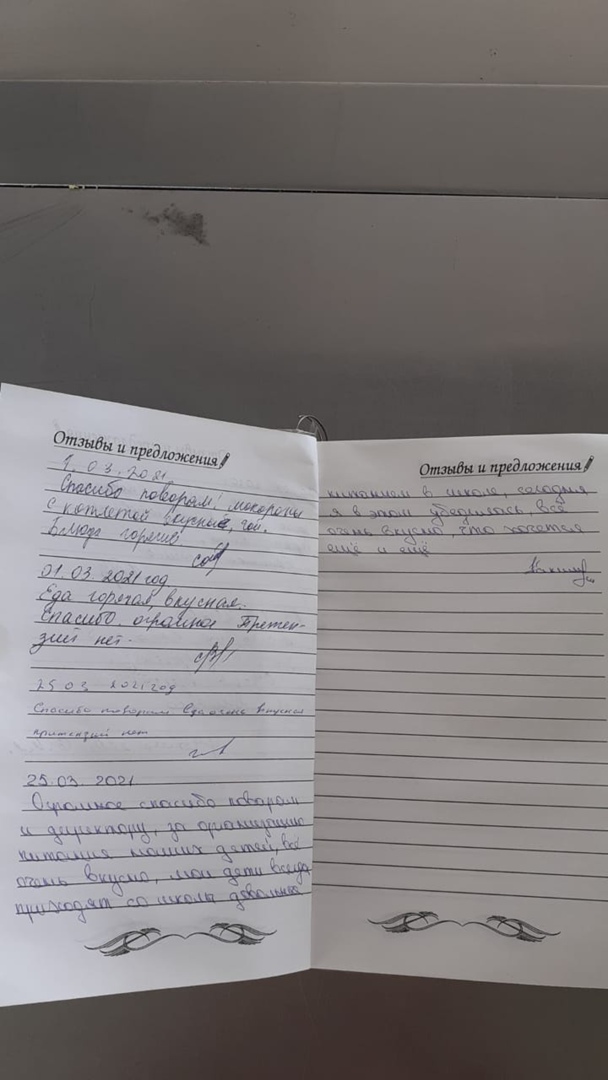 Отзывы и предложения
1.03.2021
Спасибо поварам! макароны
с котлетой вкусные, чай.
Блюда горячие
01.03.2021 год
Еда горячая, вкусная.
Спасибо огромное Претен-
зий нет.
25 03 2021 год
Спасибо поварам Еда очень вкусная
притензий нет
25.03. 2021
Огромное спасибо поварам
и директору, за организацию
питания наших детей, всё
очень вкусно, мои дети всегда
приходят со школы довольные
Отзывы и предложения
питанием в школе, сегодня
я в этом убедилась, всё
очень вкусно, что хочется
ещё и ещё